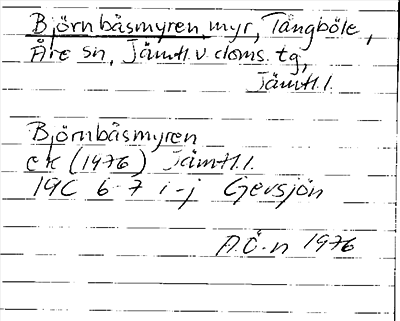 Björnbåsmyren myr, Tångböle,
Åre sn, Jämtl. v. doms. tg,
Jämtl. l.
Björnbåsmyren
ek (1976) Jämtl. l.
19C 6-7 i-j Gevsjön
A.Ö-n 1976